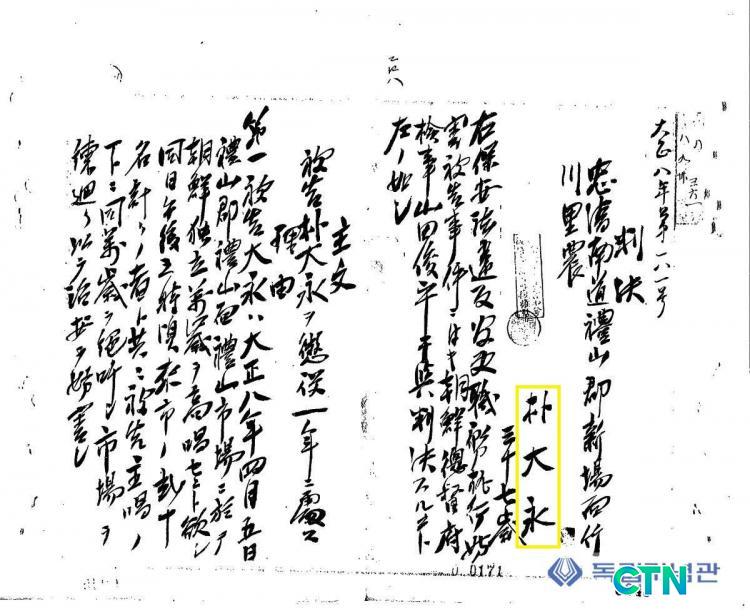 大正八年公第一八一号
判決
忠清南道禮山郡新場面竹
川里農
朴大永
三十七歳
右保安法違反公吏職務執行妨
害被告事件ニ付キ朝鮮總督府
検事山田俊平干與判決スルコト
左ノ如シ
主文
被告朴大永ヲ懲役一年ニ處ス
理由
第一被告大永ハ大正八年四月五日
禮山郡禮山面禮山市場ニ於テ
朝鮮独立萬歳ヲ高唱セント欲シ
同日午後三時頃
名計リノ者ト共ニ被告主唱ノ
下ニ同萬歳ヲ絶叫シ市場ヲ
練廻リ以テ治安ヲ妨害シ
0171
독립기념관
CTN